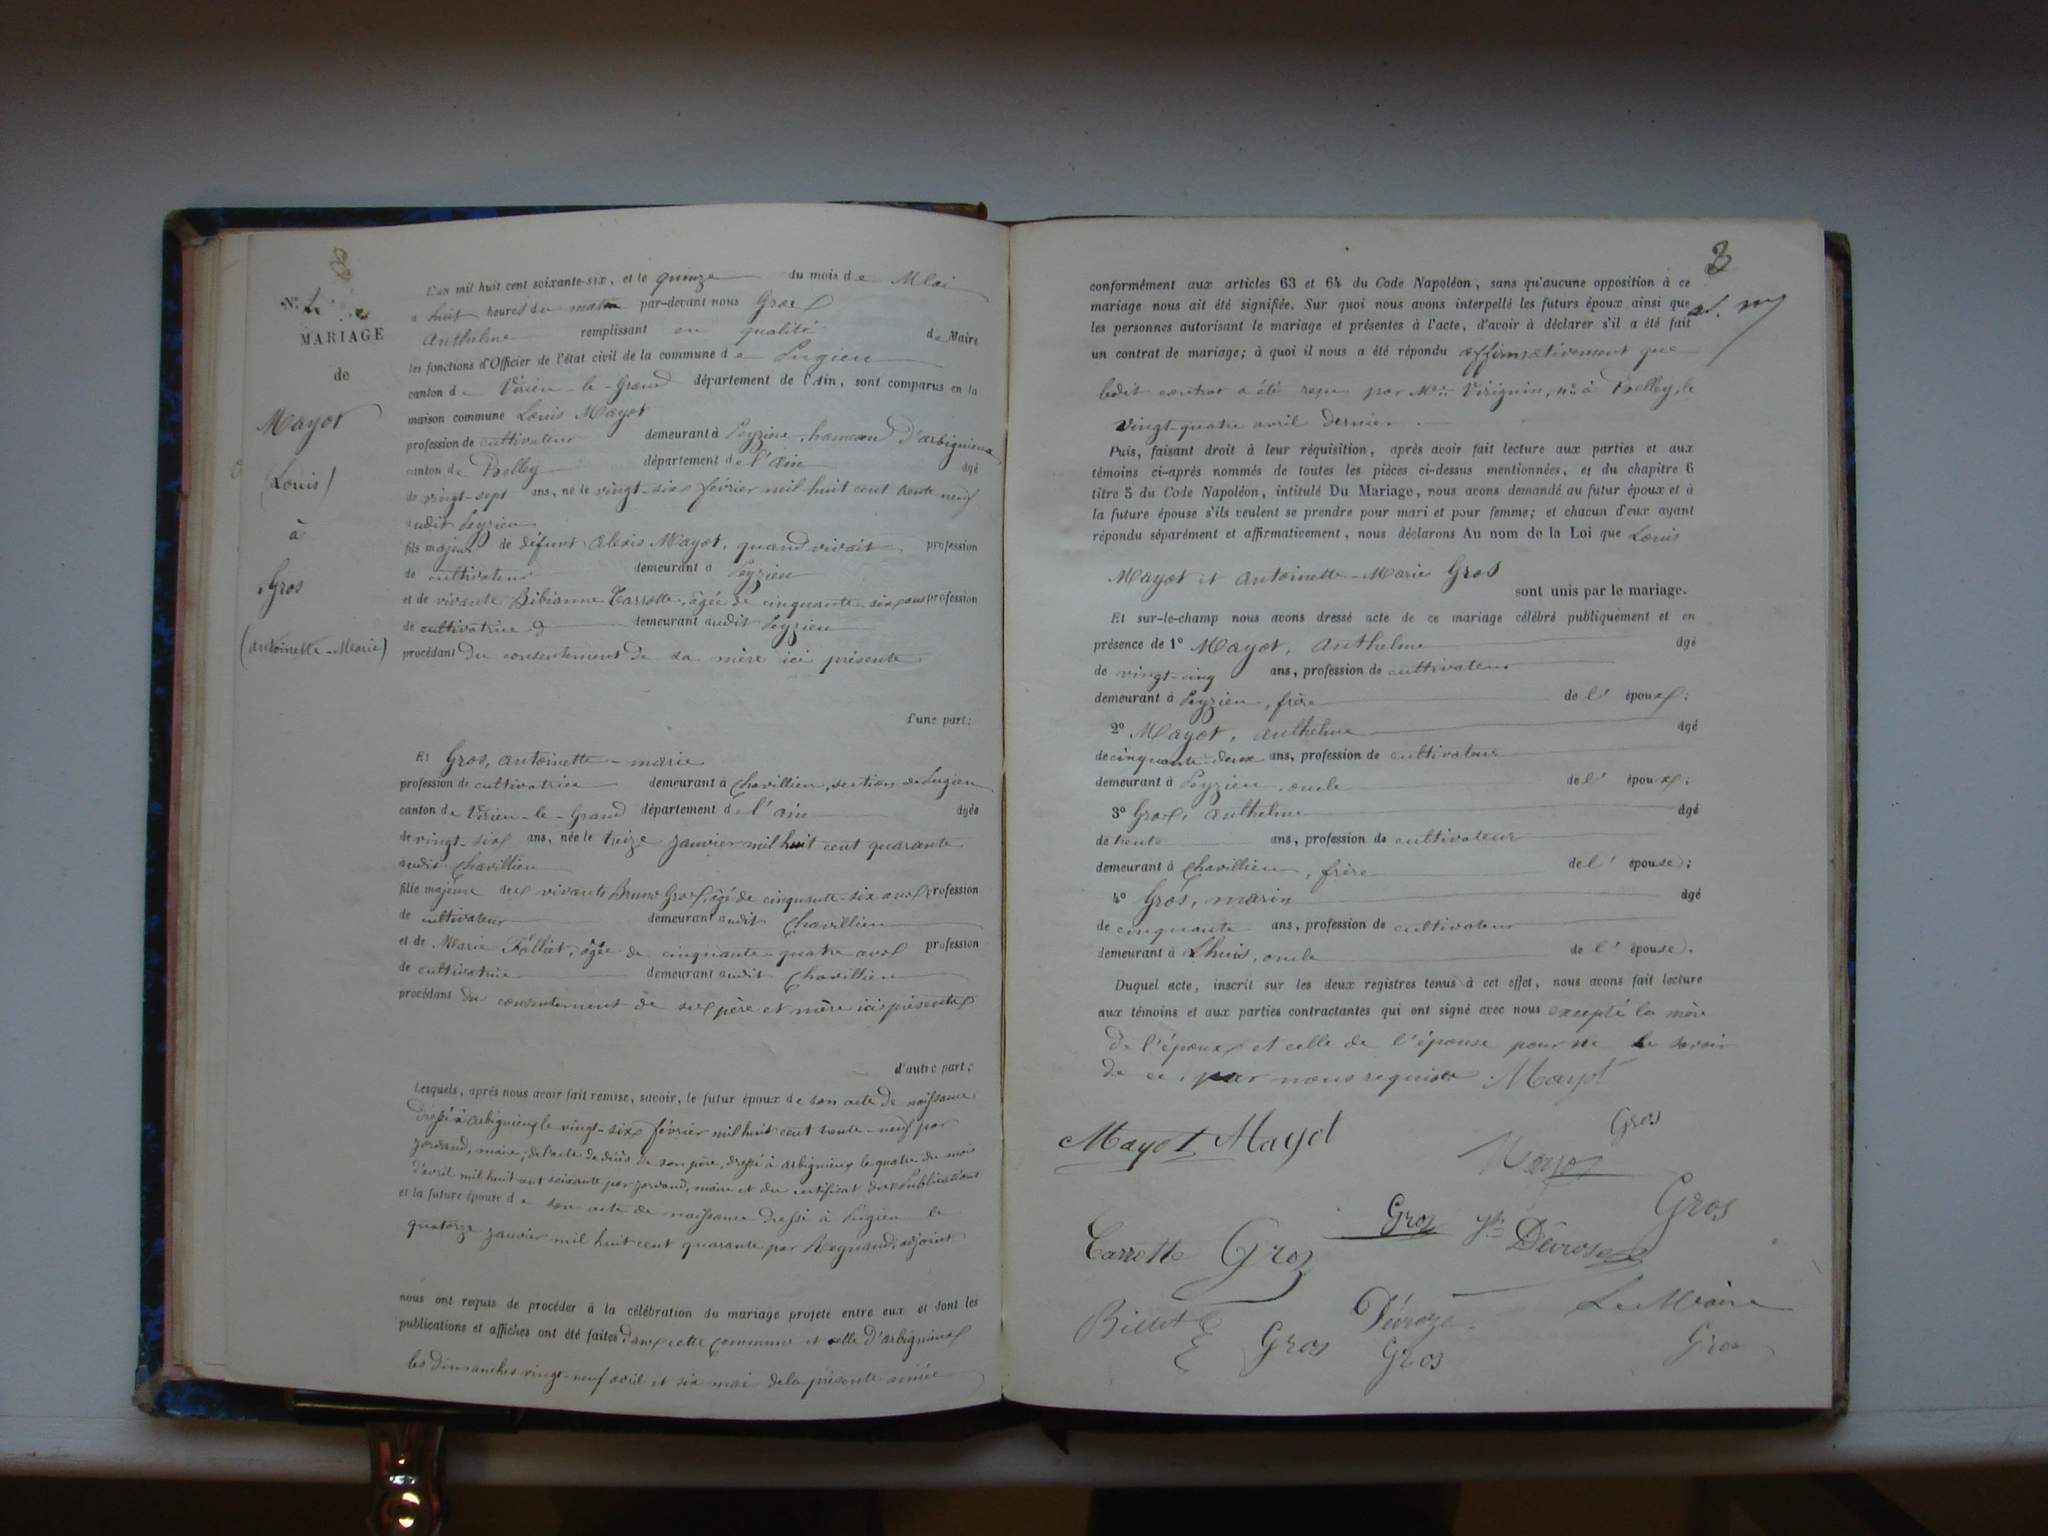 8
N°
MARIAGE
de
Mayot
(Louis)
à
Gros
(antoinette-Marie)
L'an mil huit cent soixante-six, et le quinze du mois de Mai
à huit heures du matin par-devant nous Gros
Anthelme remplissant en qualité de Maire
les fonctions d'Officier de l'état civil de la commune de Pugieu
canton de Virieu-le-Grand département de l'Ain, sont comparus en la
maison commune Louis Mayot
profession de cultivateur demeurant à Peyzieu, hameau d'arbignieux
canton de Belley département de l'ain âgé
de vingt-sept ans, né le vingt-six février mil huit cent trente neuf
audit Peyzieu
fils majeur de défunt Alexis Mayot, quand vivait profession
de cultivateur demeurant à Peyzieu
et de vivante Bibianne Carrotte, âgée de cinquante-six ans profession
de cultivatrice demeurant audit Peyzieu
procédant du consentement de sa mère ici présente
d'une part;
Et Gros, antoinette-marie
profession de cultivatrice demeurant à Chavillieu, section de Pugieu
canton de Virieu-le-Grand département de l'ain âgée
de vingt-six ans, née le treize janvier mil huit cent quarante
audit Chavillieu
fille majeure des vivants Bruno Gros, âgé de cinquante-six ans profession
de cultivateur demeurant audit Chavillieu
et de Marie Folliet, âgée de cinquante-quatre ans profession
de cultivatrice demeurant audit Chavillieu
procédant du consentement de ses père et mère ici présents
d'autre part;
Lesquels, après nous avoir fait remise, savoir, le futur époux de son acte de naissance
dressé à arbignieux le vingt-six février mil huit cent trente-neuf par
maire; de l'acte de décès de son père, dressé à arbignieux le quatre du mois
d'avril mil huit cent soixante par maire et du certificat des publications
et la future épouse de son acte de naissance dressé à Pugieu le
quatorze janvier mil huit cent quarante par Reynaud, adjoint
nous ont requis de procéder à la célébration du mariage projeté entre eux et dont les
publications et affiches ont été faites dans cette commune et celle d'arbignieux
les dimanches vingt-neuf avril et six mai de la présente année
8
conformément aux articles 63 et 64 du Code Napoléon, sans qu'aucune opposition à ce
mariage nous ait été signifiée. Sur quoi nous avons interpellé les futurs époux ainsi que
les personnes autorisant le mariage et présentes à l'acte, d'avoir à déclarer s'il a été fait
un contrat de mariage; à quoi il nous a été répondu affirmativement que
ledit contrat a été reçu par Me Virignin, nre à Belley, le
vingt-quatre avril dernier.
Puis, faisant droit à leur réquisition, après avoir fait lecture aux parties et aux
témoins ci-après nommés de toutes les pièces ci-dessus mentionnées, et du chapitre 6
titre 5 du Code Napoléon, intitulé Du Mariage, nous avons demandé au futur époux et à
la future épouse s'ils veulent se prendre pour mari et pour femme; et chacun d'eux ayant
répondu séparément et affirmativement, nous déclarons Au nom de la Loi que Louis
Mayot et Antoinette-Marie Gros
sont unis par le mariage.
Et sur-le-champ nous avons dressé acte de ce mariage célébré publiquement et en
présence de 1° Mayot, Anthelme âgé
de vingt-cinq ans, profession de cultivateur
demeurant à Peyzieu, frère de l'époux;
2° Mayot, Anthelme âgé
de cinquante-deux ans, profession de cultivateur
demeurant à Peyzieu, oncle de l'époux;
3° Gros, Anthelme âgé
de trente ans, profession de cultivateur
demeurant à Chavillieu, frère de l'épouse;
4° Gros, marin âgé
de cinquante ans, profession de cultivateur
demeurant à Lhuis, oncle de l'épouse.
Duquel acte, inscrit sur les deux registres tenus à cet effet, nous avons fait lecture
aux témoins et aux parties contractantes qui ont signé avec nous excepté la mère
de l'époux et celle de l'épouse pour ne le savoir
de ce par nous requises. Mayot
Gros
Mayot Mayot
Gros
Gros
Devrose
Carrotte Gros
Billet
Dévroze
Le Maire
Gros Gros
Gros